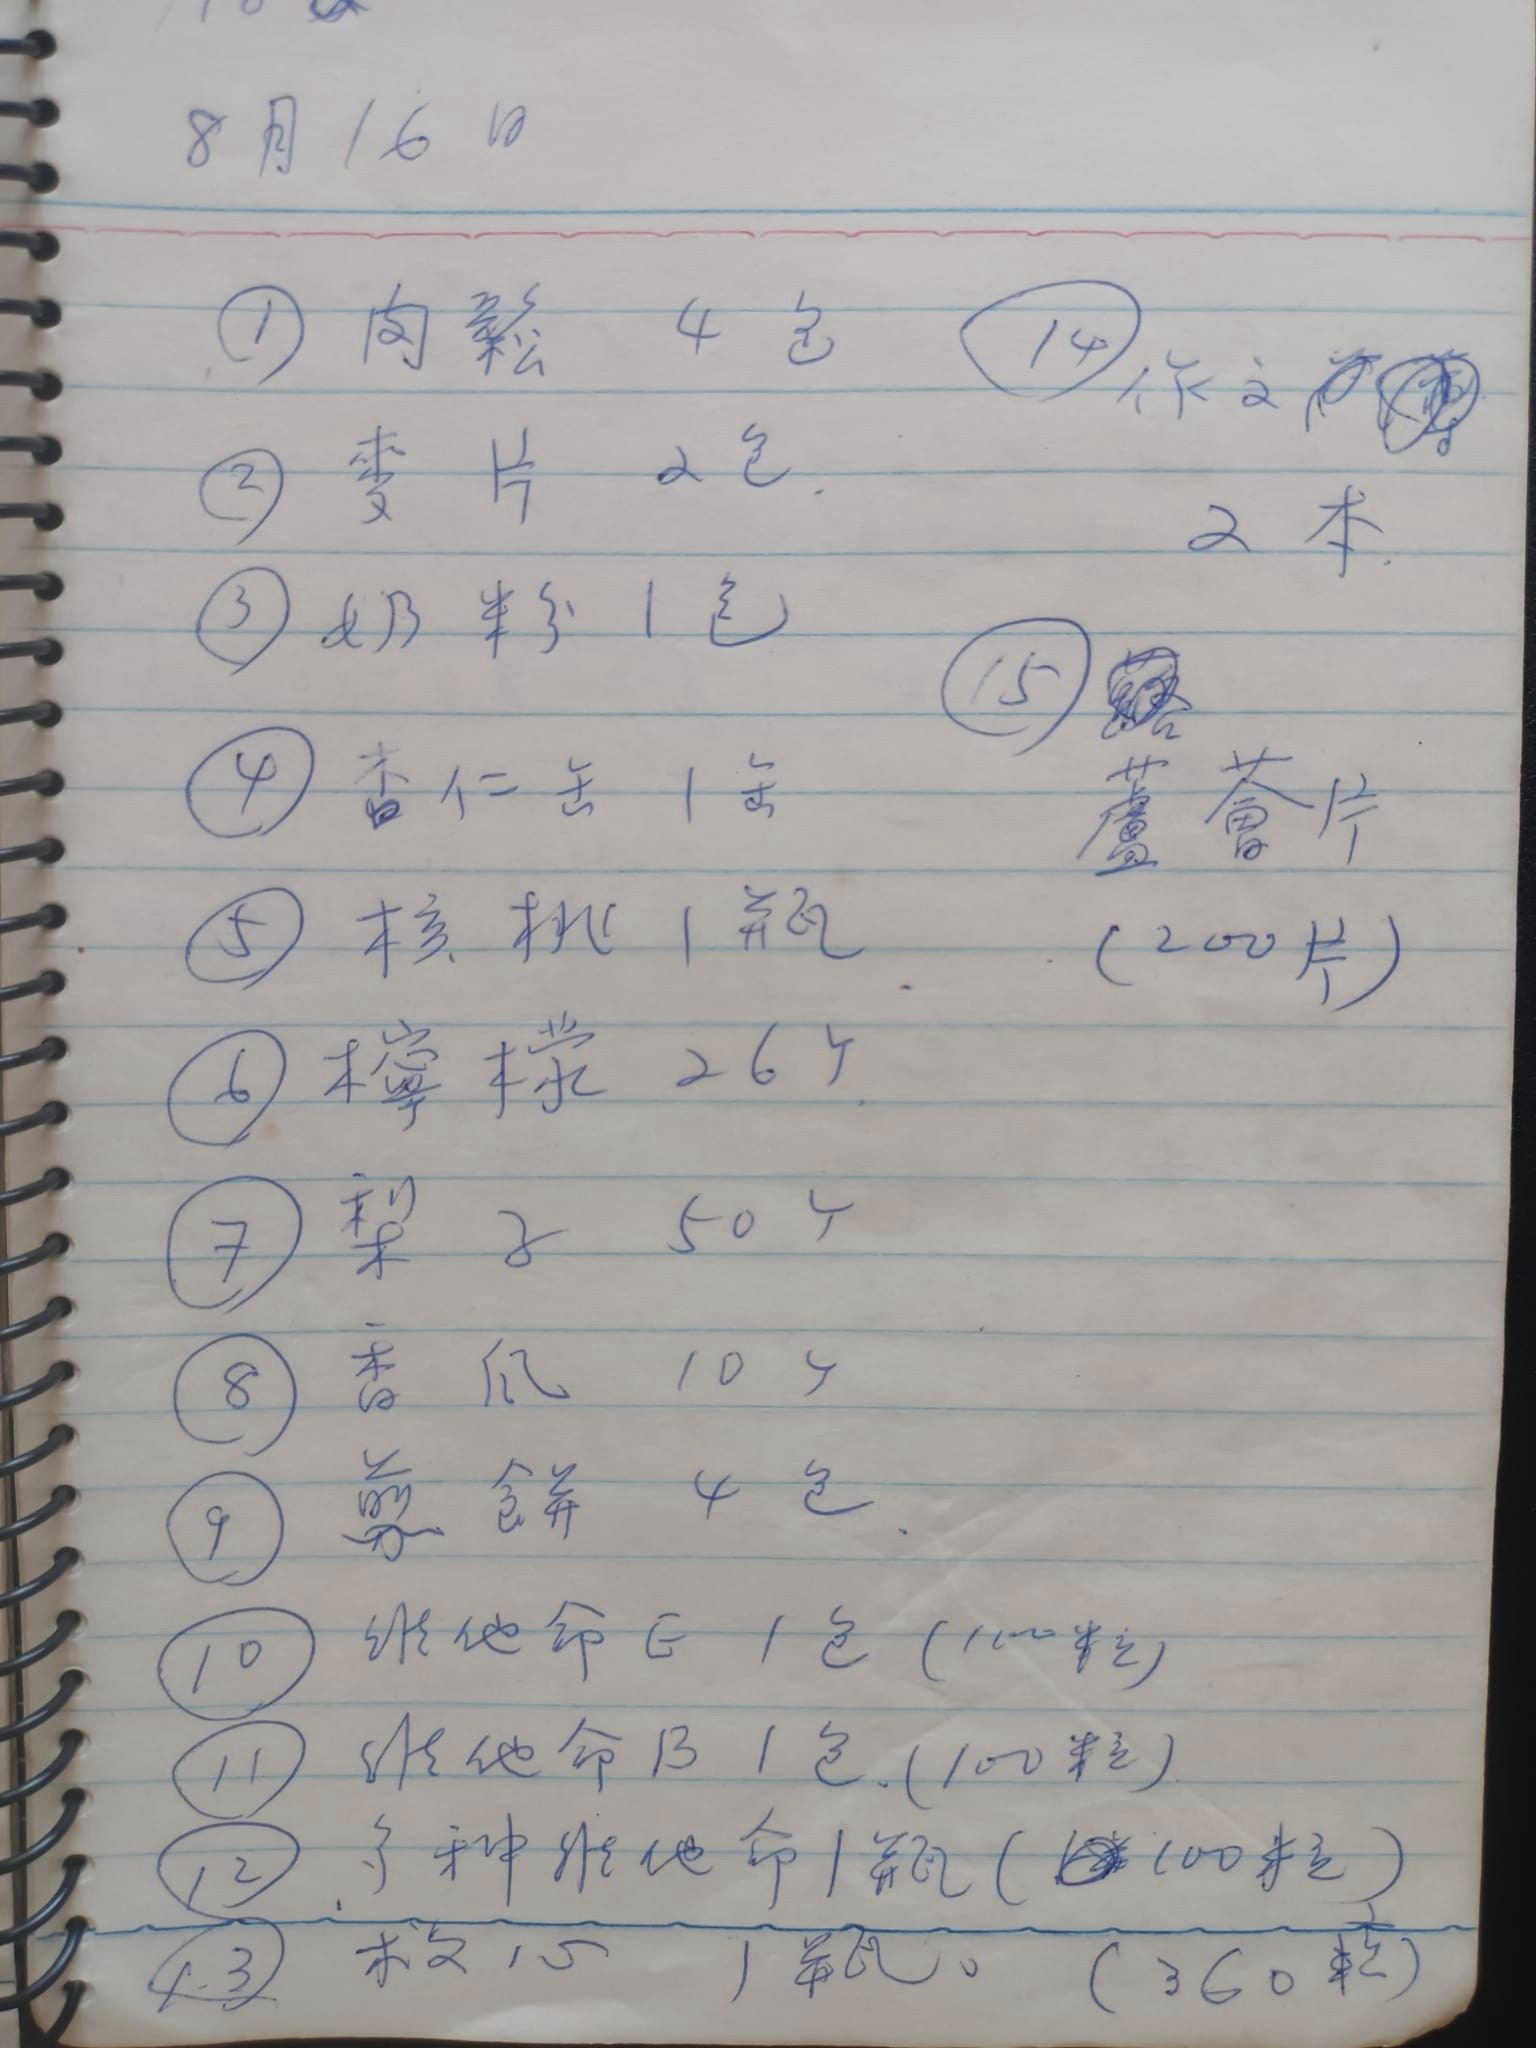 8月16日
① 肉鬆 4包
② 麥片 2包.
③ 奶粉 1包
④ 杏仁缶 1缶
⑤ 核桃 1瓶.
⑥ 檸檬 26个
⑦ 梨子 50个
⑧ 香瓜 10个
⑨ 煎餅 4包.
⑩ 維他命E 1包 (100粒)
⑪ 維他命B 1包.(100粒)
⑫ 多种維他命1瓶 (100粒)
⑬ 救心 1瓶。 (360粒)
⑭ 作文
2本.
⑮
蘆薈片
(200片)